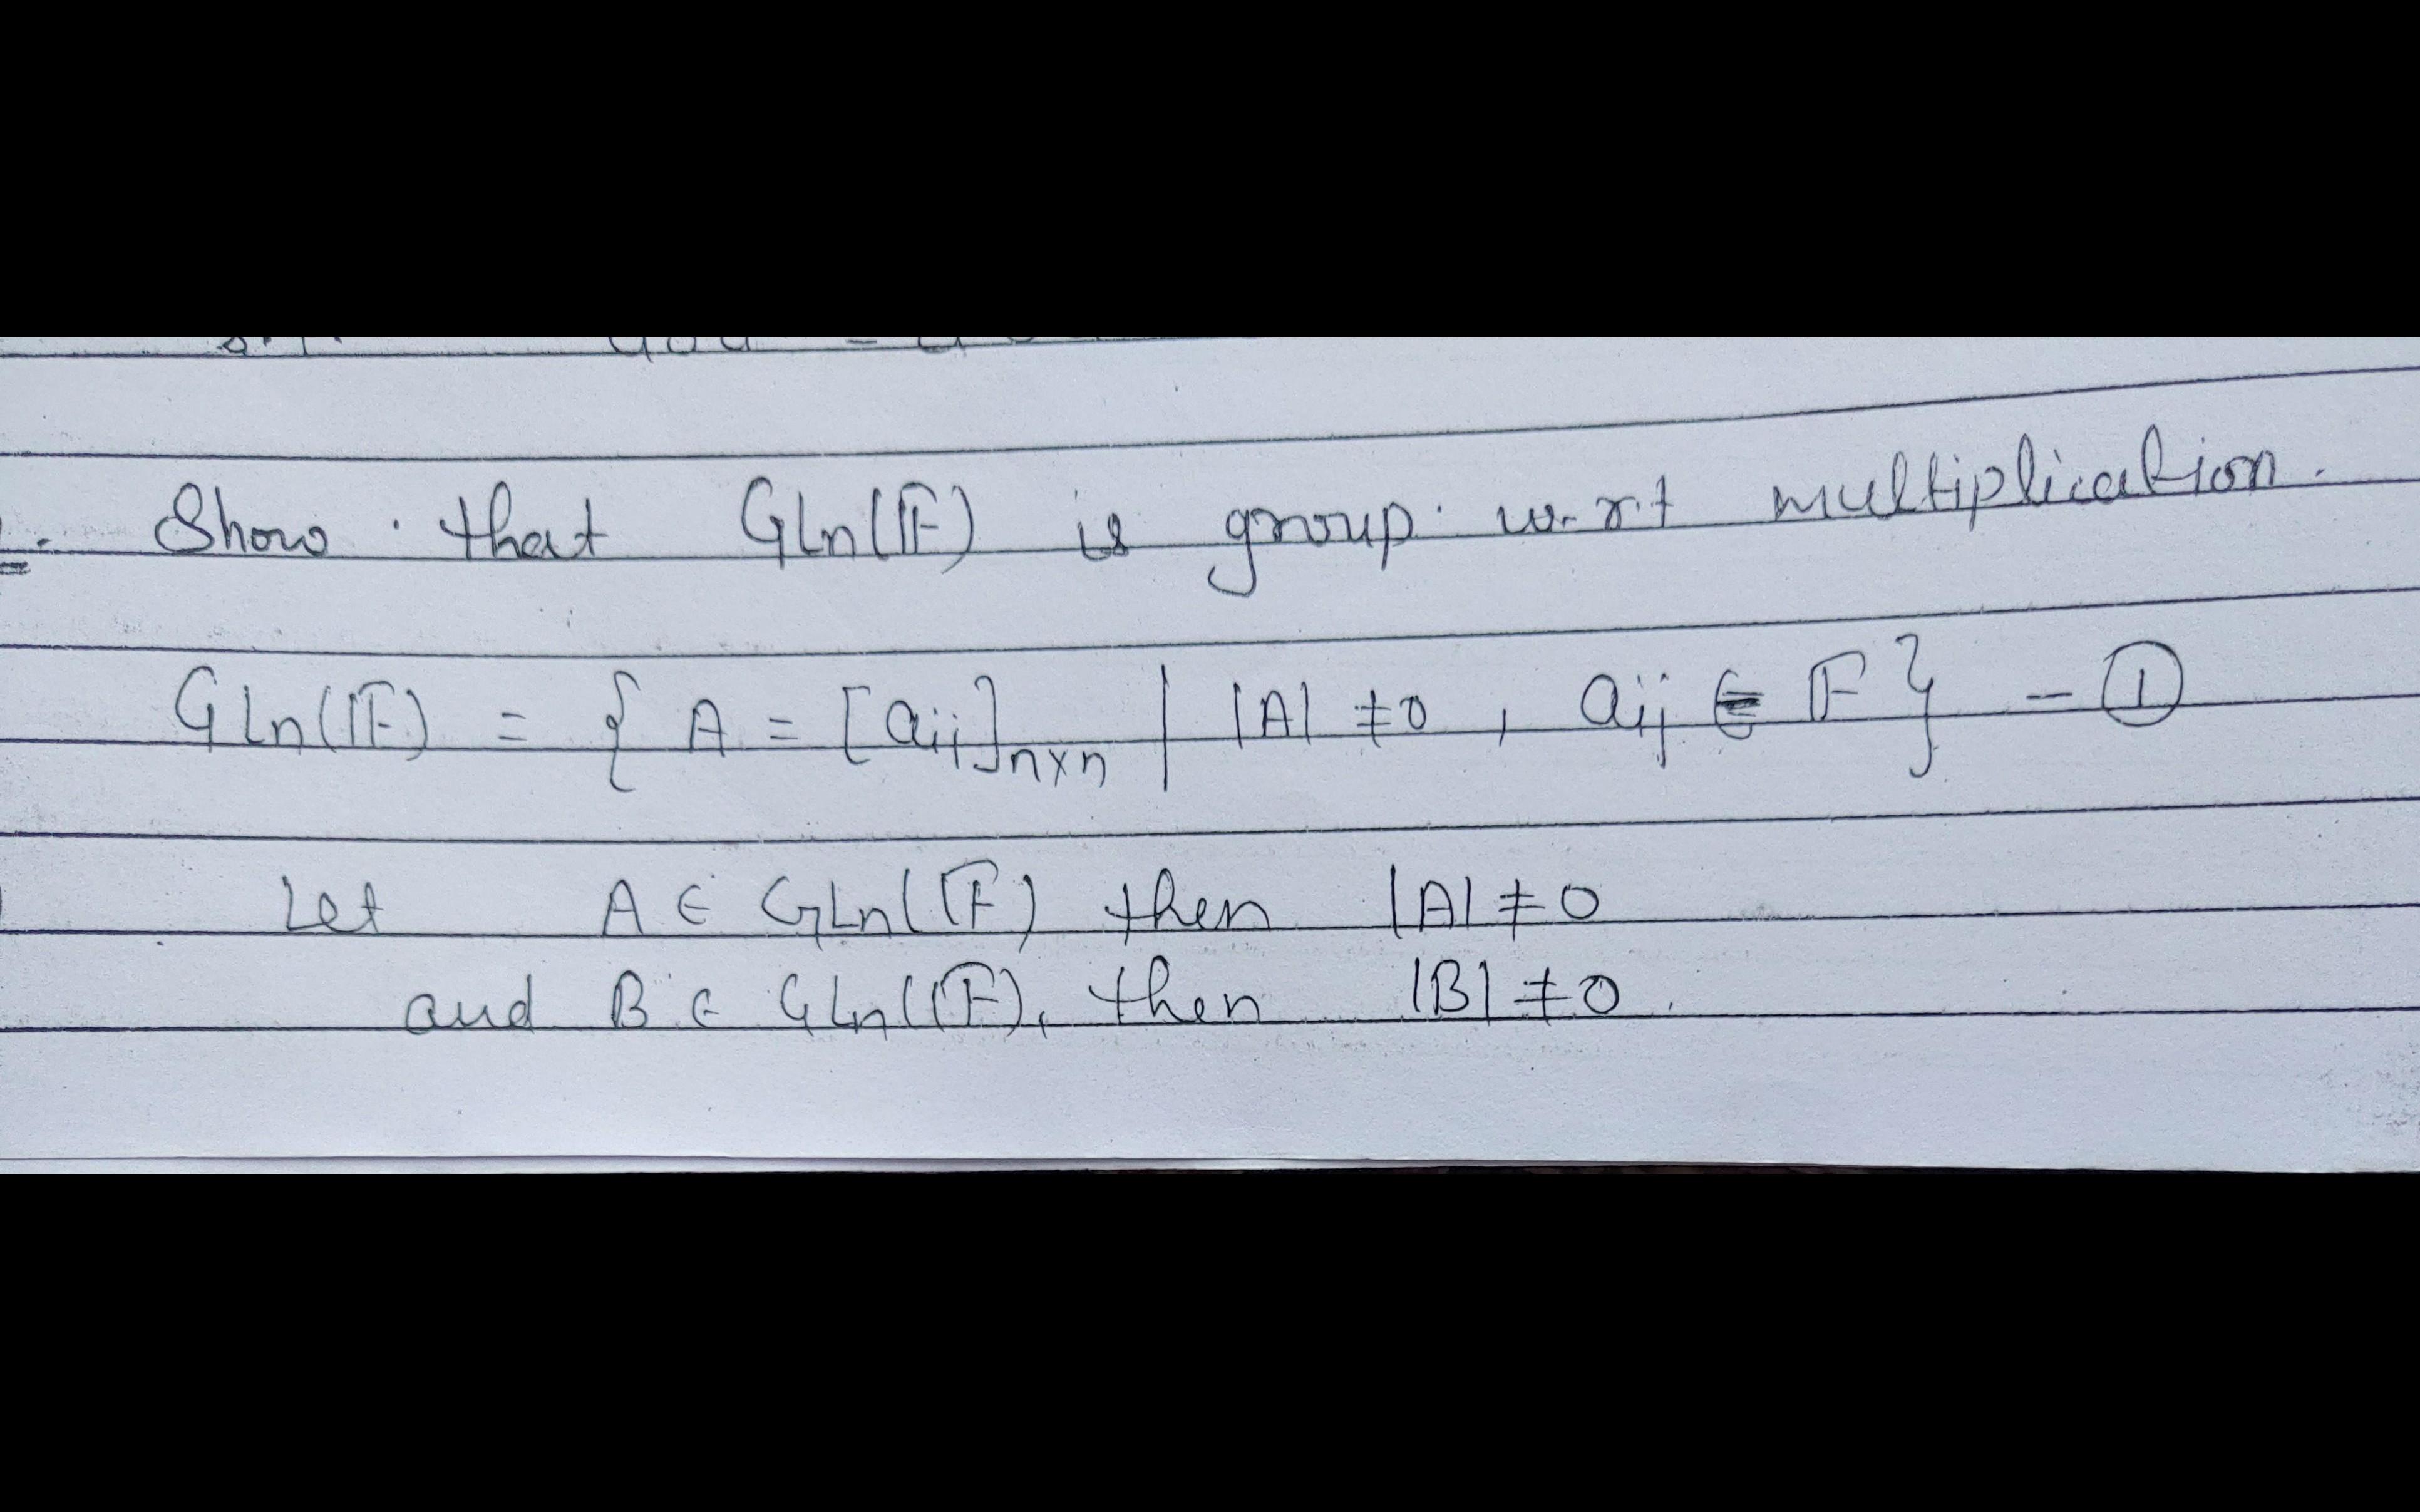 Show that GLn(𝔽) is group w.r.t multiplication.
GLn(𝔽) = { A = [aij]n×n | |A| ≠ 0 , aij ∈ 𝔽 } - ①
Let A ∈ GLn(𝔽) then |A| ≠ 0
and B ∈ GLn(𝔽), then |B| ≠ 0.